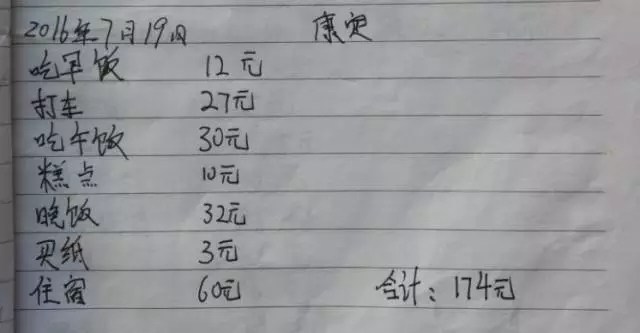 2016年7月19日 康定
吃早饭 12元
打车 27元
吃午饭 30元
糕点 10元
晚饭 32元
买纸 3元
住宿 60元 合计：174元